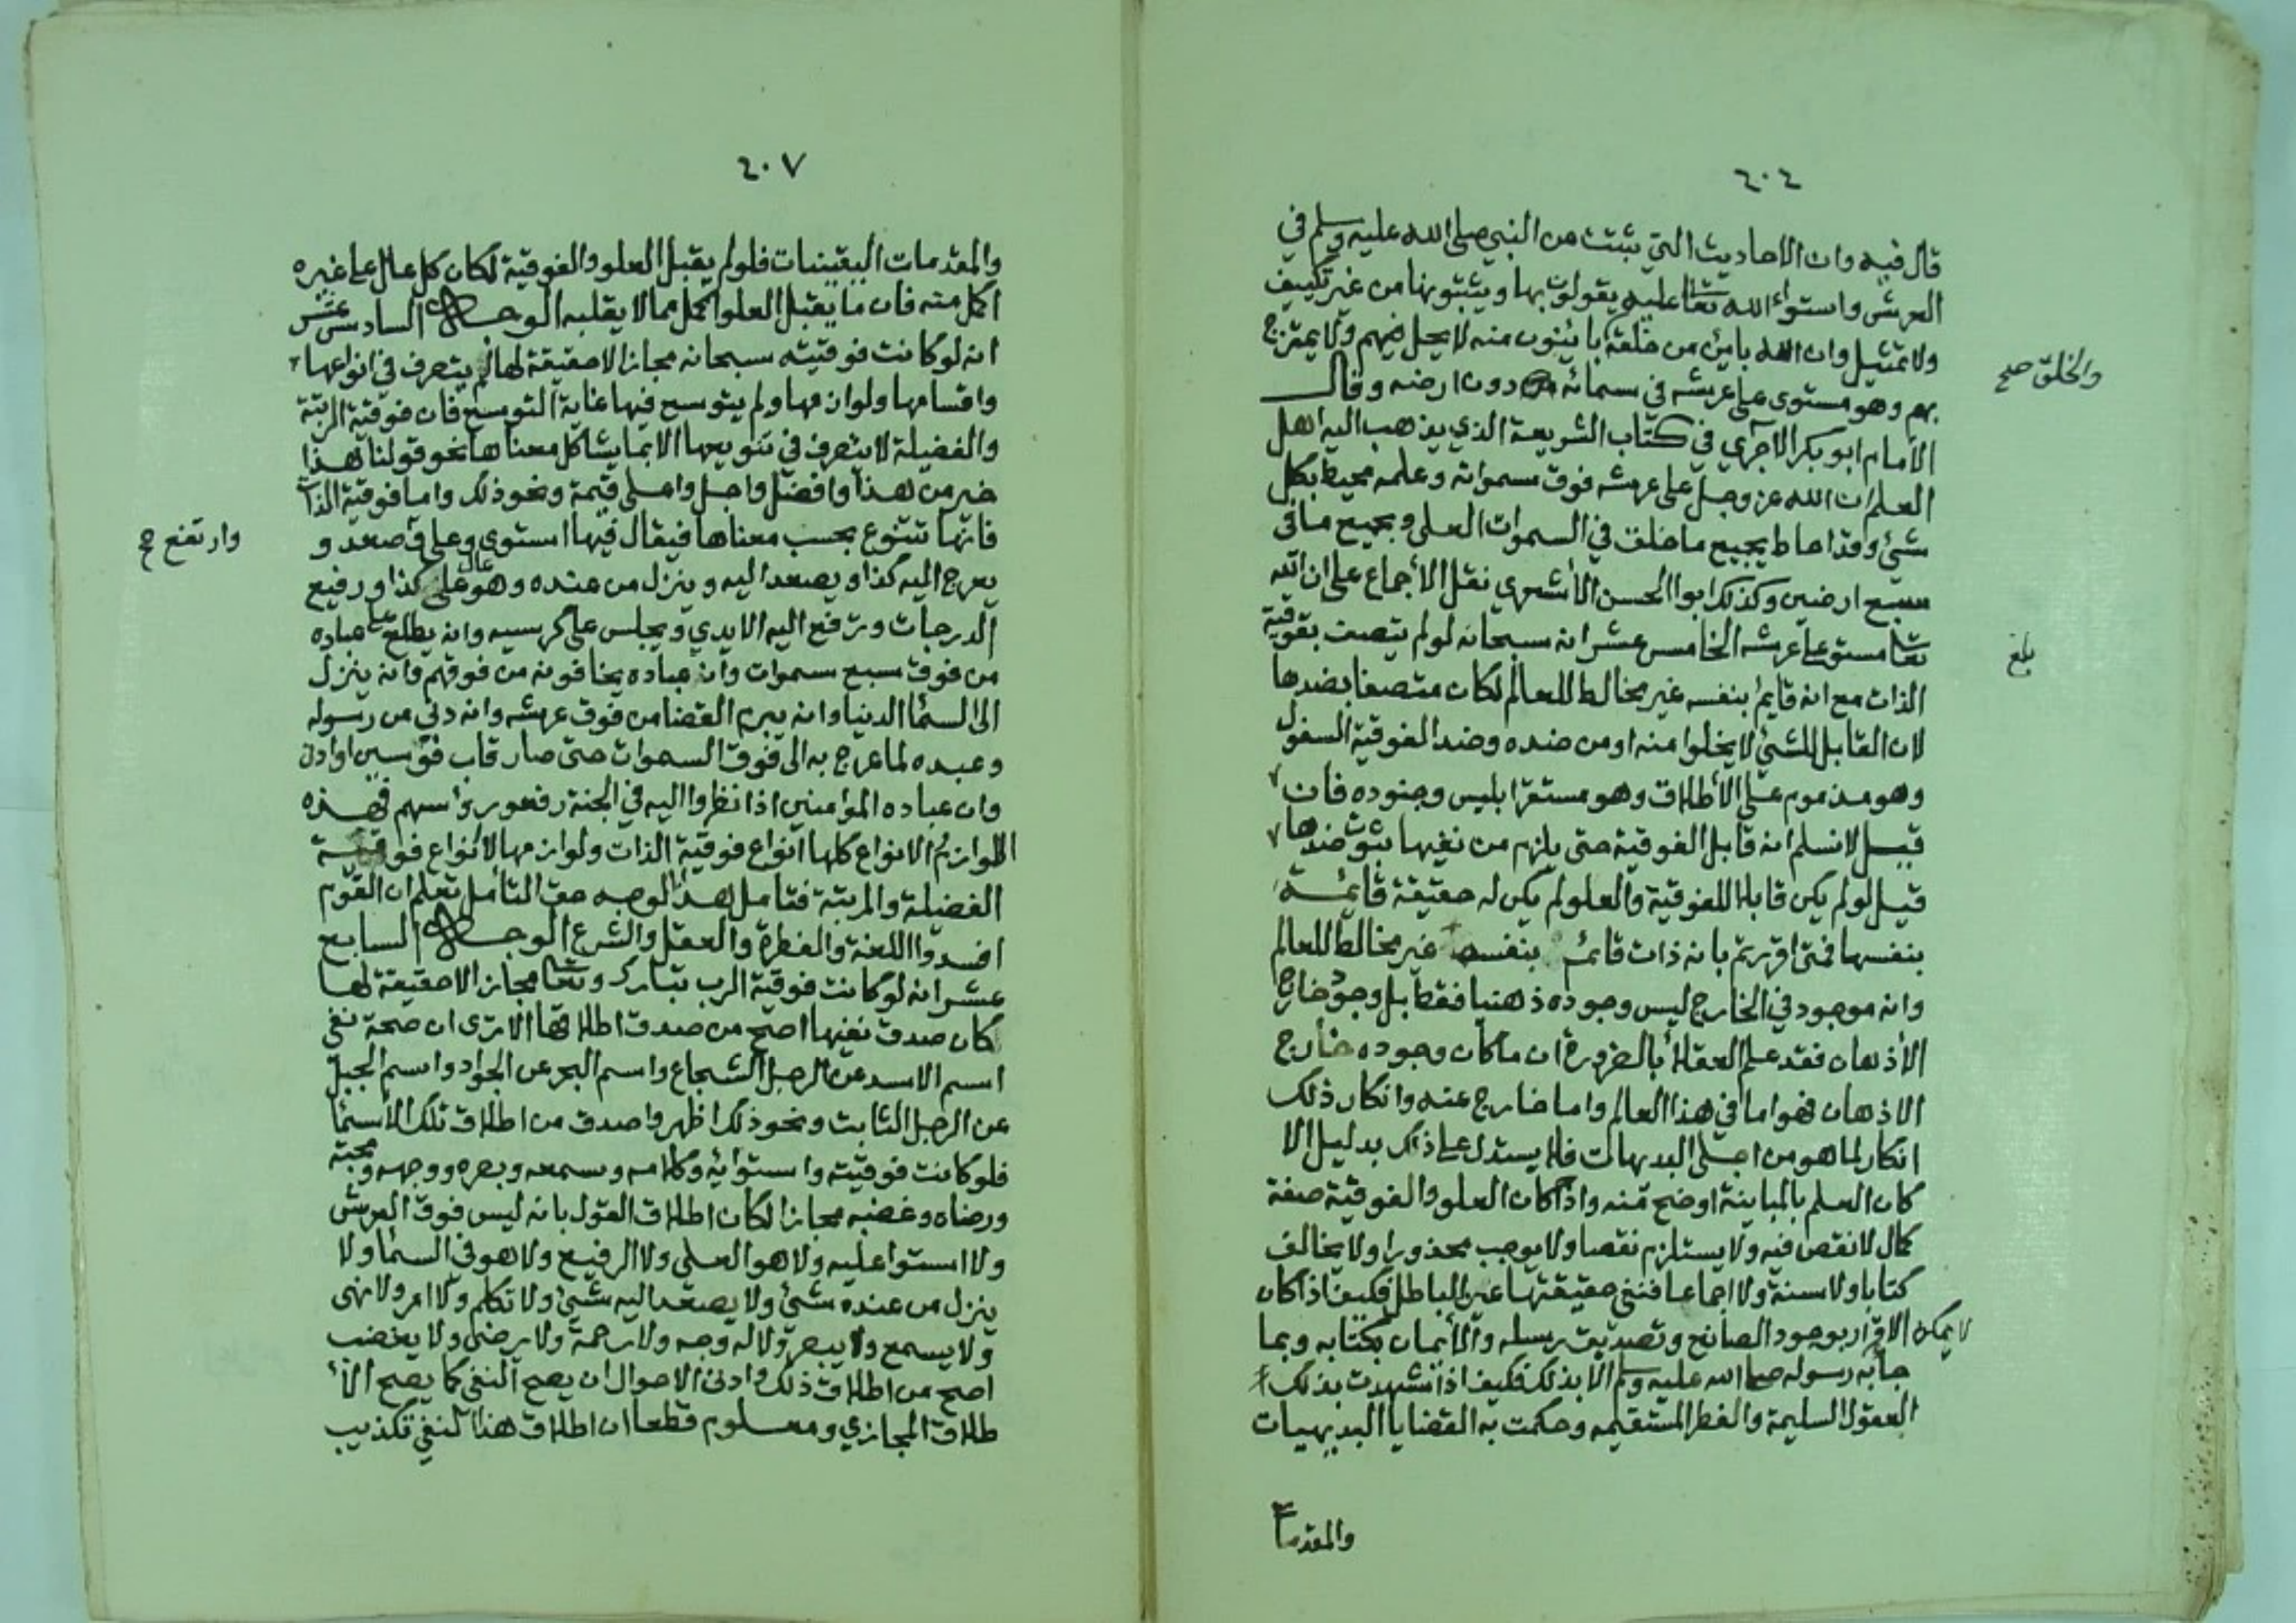 ٤٠٤
قال فيه وان الاحاديث التي ثبتت من النبي صلى الله عليه وسلم في
العرش واستواء الله تعا عليه يقولون بها ويثبتونها من غير تكييف
ولا تمثيل وان الله باين من خلقه بائنون منه لا يحل فيهم ولا يمتزج
والخلق صح
بهم وهو مستوى على عرشه في سمائه دون ارضه وقال
الامام ابو بكر الآجري في كتاب الشريعة الذي يذهب اليه اهل
العلم ان الله عز وجل على عرشه فوق سمواته وعلمه محيط بكل
شئ وقد احاط بجميع ما خلق في السموات العلى وبجميع ما في
سبع ارضين وكذلك ابوا الحسن الأشعري نقل الأجماع على ان الله
تعا مستو على عرشه الخامس عشر انه سبحانه لو لم يتصف بفوقية
بلغ
الذات مع انه قايم بنفسه غير مخالط للعالم لكان متصفا بضدها
لان القابل للشئ لا يخلوا منه او من ضده وضد الفوقية السفول
وهو مذموم على الأطلاق وهو مستقر ابليس وجنوده فان
قيل لا نسلم انه قابل الفوقية حتى يلزم من نفيها ثبوت ضدها
قيل لو لم يكن قابلا للفوقية والعلو لم يكن له حقيقة قائمة
بنفسها فمتى اقررتم بانه ذات قائم بنفسه غير مخالط للعالم
وانه موجود في الخارج ليس وجوده ذهنيا فقط بل وجوده خارج
الأذهان فقد علم العقلاء بالضرورة ان ما كان وجوده خارج
الاذهان فهو اما في هذا العالم واما خارج عنه وانكار ذلك
انكار لما هو من اجلى البديهات فلا يستدل على ذلك بدليل الا
كان العلم بالمباينة اوضح منه واذا كان العلو والفوقية صفة
كمال لا نقص فيه ولا يستلزم نقصا ولا يوجب محذورا ولا يخالف
كتابا ولا سنة ولا اجماعا فنفي حقيقتها عين الباطل فكيف اذا كان
لا يمكن الاقرار بوجود الصانع وتصديق رسله والأيمان بكتابه وبما
جآبه رسوله صلى الله عليه وسلم الا بذلك فكيف اذا شهدت بذلك
العقول السليمة والفطر المستقيمه وحكمت به القضايا البديهيات
والمقدمات
٤٠٧
والمقدمات اليقينيات فلو لم يقبل العلو والفوقية لكان كل عال على غيره
اكمل منه فان ما يقبل العلو اكمل مما لا يقلبه الوجه السادس عشر
انه لو كانت فوقيته سبحانه مجازا لا حقيقة لها لم يتصرف في انواعها
واقسامها ولوازمها ولم يتوسع فيها غاية التوسع فان فوقية الرتبة
والفضيلة لا يتصرف في تنويعها الا بما يشاكل معناها نحو قولنا هذا
خير من هذا وافضل واجل واعلى قيمة ونحو ذلك واما فوقية الذات
فانها تتنوع بحسب معناها فيقال فيها استوى وعلى وصعد و
وارتفع صح
يعرج اليه كذا ويصعد اليه وينزل من عنده وهو عال على كذا ورفيع
الدرجات وترفع اليه الايدي ويجلس على كرسيه وانه يطلع على عباده
من فوق سبع سموات وان عباده يخافونه من فوقهم وانه ينزل
الى السمآ الدنيا وانه يبرم القضا من فوق عرشه وانه دنى من رسوله
وعبده لما عرج به الى فوق السموات حتى صار قاب قوسين او ادنى
وان عباده المؤامنين اذا نظروا اليه في الجنة رفعو رؤاسهم فهذه
اللوازم الانواع كلها انواع فوقية الذات ولوازمها لا انواع فوقية
الفضيلة والمرتبة فتامل هذا الوجه حق التأمل تعلم ان القوم
افسدوا اللغة والفطرة والعقل والشرع الوجه السابع
عشر انه لو كانت فوقية الرب تبارك وتعا مجازا لا حقيقة لها
لكان صدق نفيها اصح من صدق اطلاقها الا ترى ان صحة نفي
اسم الاسد عن الرجل الشجاع واسم البحر عن الجواد واسم الجبل
عن الرجل الثابت ونحو ذلك اظهر واصدق من اطلاق تلك الأسمآ
فلو كانت فوقيته واستوائه وكلامه وسمعه وبصره ووجهه ومحبته
ورضاه وغضبه مجازا لكان اطلاق القول بانه ليس فوق العرش
ولا استوا عليه ولا هو العلى ولا الرفيع ولا هو في السمآ ولا
ينزل من عنده شئ ولا يصعد اليه شئ ولا تكلم ولا امر ولا نهى
ولا يسمع ولا يبصر ولا له وجه ولا رحمة ولا يرضى ولا يغضب
اصح من اطلاق ذلك وادنى الاحوال ان يصح النفي كما يصح الأ
طلاق المجازي ومعلوم قطعا ان اطلاق هذا النفي تكذيب